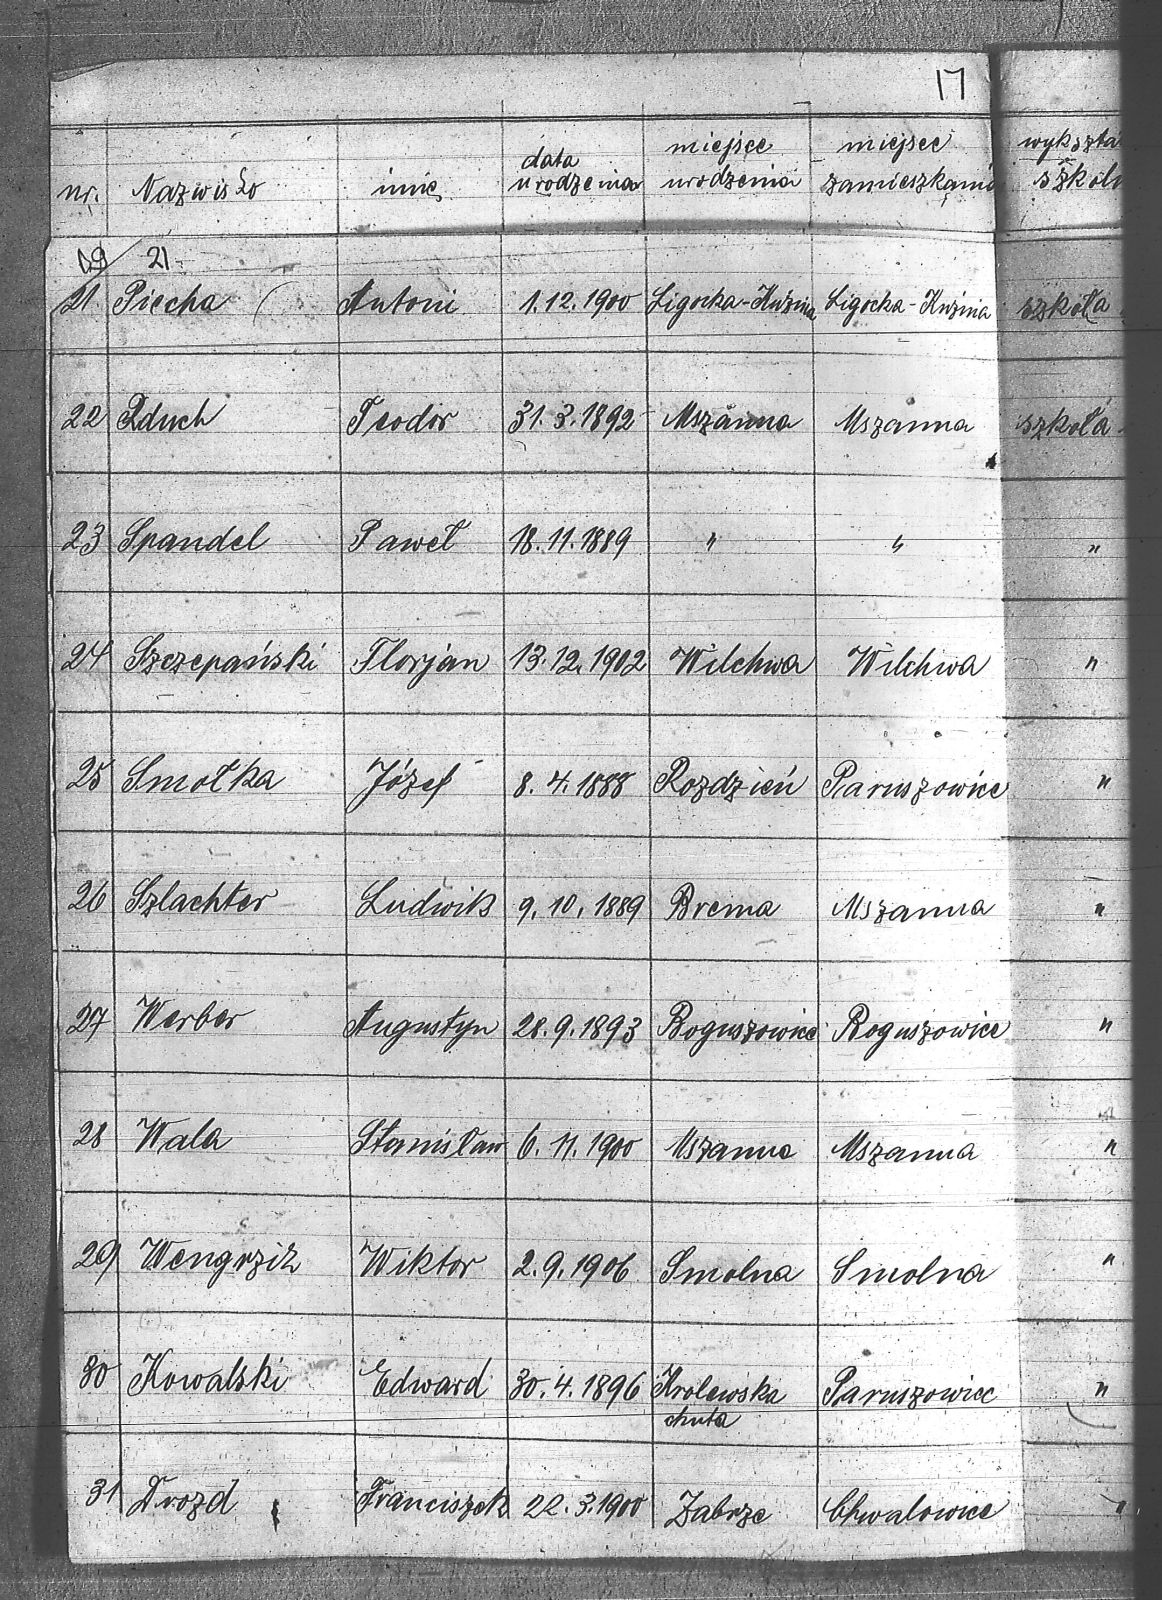 17
nr. Nazwisko imię data urodzenia miejsce urodzenia miejsce zamieszkania
21
21 Piecha Antoni 1.12.1900 Ligocka-Kuźnia Ligocka-Kuźnia szkoła
22 Zduch Teodor 31.3.1892 Mszanna Mszanna szkoła
23 Spandel Paweł 18.11.1889 " " "
24 Szczepański Florjan 13.12.1902 Wilchwa Wilchwa "
25 Smołka Józef 8.4.1888 Rozdzień Paruszowice "
26 Szlachter Ludwik 9.10.1889 Brema Mszanna "
27 Werber Augustyn 28.9.1893 Boguszowice Boguszowice "
28 Wala Stanisław 6.11.1900 Mszanna Mszanna "
29 Wengrzik Wiktor 2.9.1906 Smolna Smolna "
30 Kowalski Edward 30.4.1896 Krolewska Paruszowice "
chuta
31 Drozd Franciszek 22.3.1900 Zabrze Chwalowice "